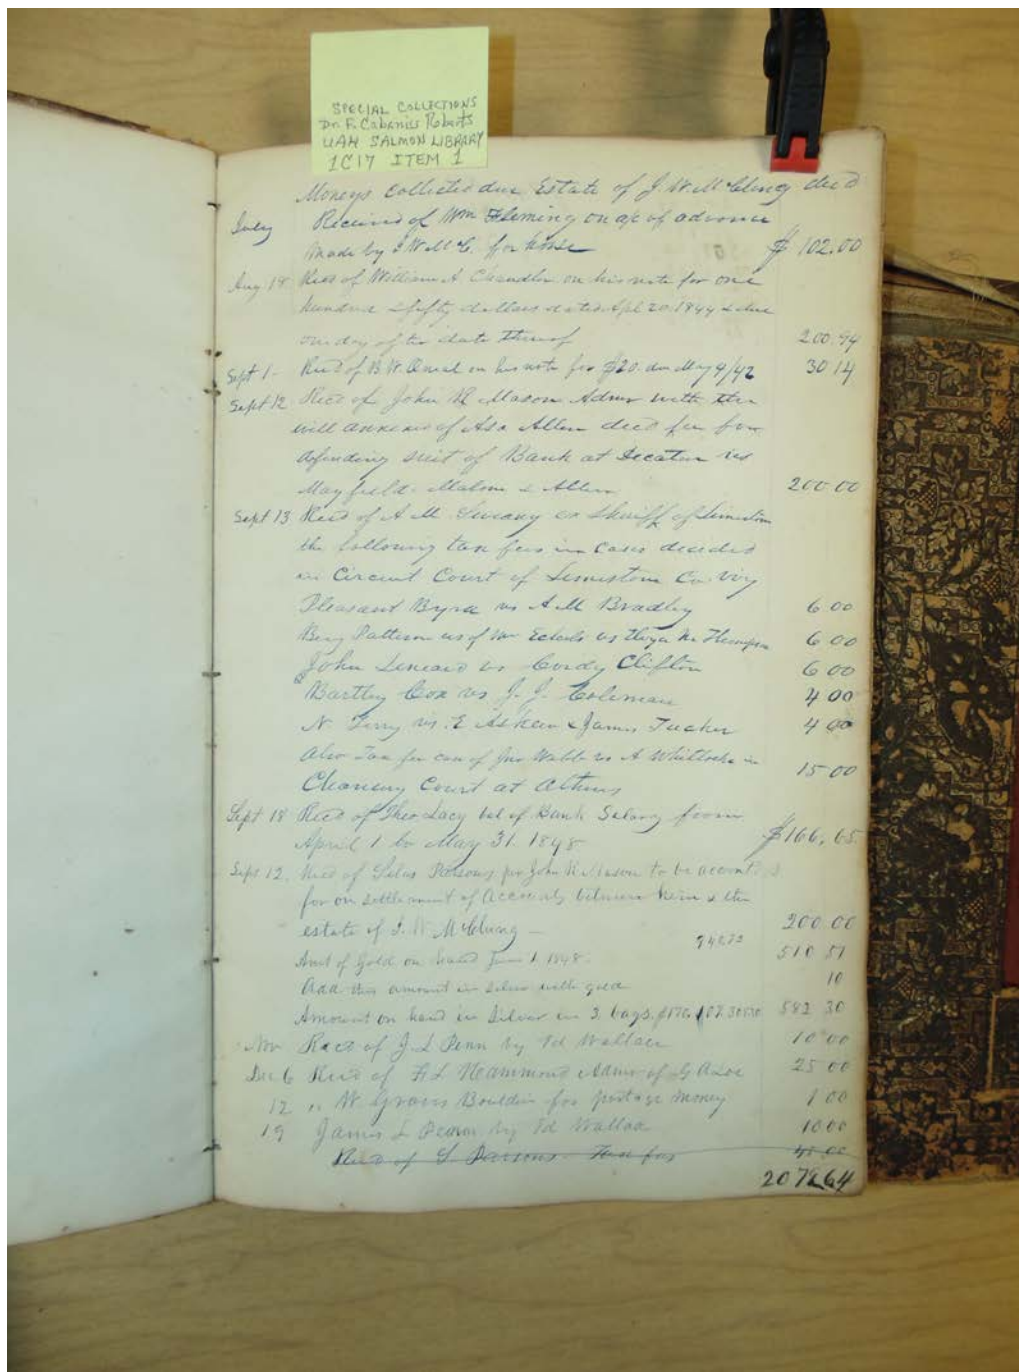 SPECIAL COLLECTIONS
Dr. F. Cabaniss Roberts
UAH SALMON LIBRARY
1C17 ITEM 1
Moneys collected due Estate of J. W. McClung decd
July Received of Wm Fleming on a/c of advance
made by J W McC. for horse $ 102.00
Aug 19 Recd of William A. Chandler on his note for one
hundred & fifty dollars dated Apl 20. 1844 & due
one day after date thereof 200.94
Sept 1 - Recd of B W. Oneal on his note for $20. due May 9/42 30 14
Sept 12 Recd of John R Mason Admr with the
will annexed of Asa Allen decd fee for
defending suit of Bank at Decatur vs
Mayfield. Malone & Allen 200.00
Sept 13 Recd of A M. ex Sheriff of Limestone
the following tax fees in cases decided
in Circuit Court of Limestone Co. viz
Pleasant vs A. M Bradley 6 00
Benj Patterson use of vs 6 00
John vs Clifton 6 00
Bartley Cox vs J. J. Coleman 4 00
N Terry vs. E Askew & James Tucker 4 00
Also Tax fee case of Jno Webb vs A Whitlocke in 15 00
Chancery Court at Athens
Sept 18 Recd of Theo Lacy bal of Bank Salary from
April 1 to May 31. 1848 $166.65
Sept. 12. Recd of Silas Parsons for John R Mason to be accounted
for on settlement of Accounts between him & the
estate of J. W McClung — 200.00
Amt of Gold on hand June 1. 1848. 510 51
Add this amount in silver with gold 10
Amount on hand in Silver in 3 bags. 582 30
Nov Recd of J L Penn by Td Wallace 10 00
Dec 6 Recd of F. L Hammond Admr of G A 25 00
12 " W. Bouldin for postage money 1 00
19 James L by Td Wallace 10.00
Recd of S Parsons Tax fees